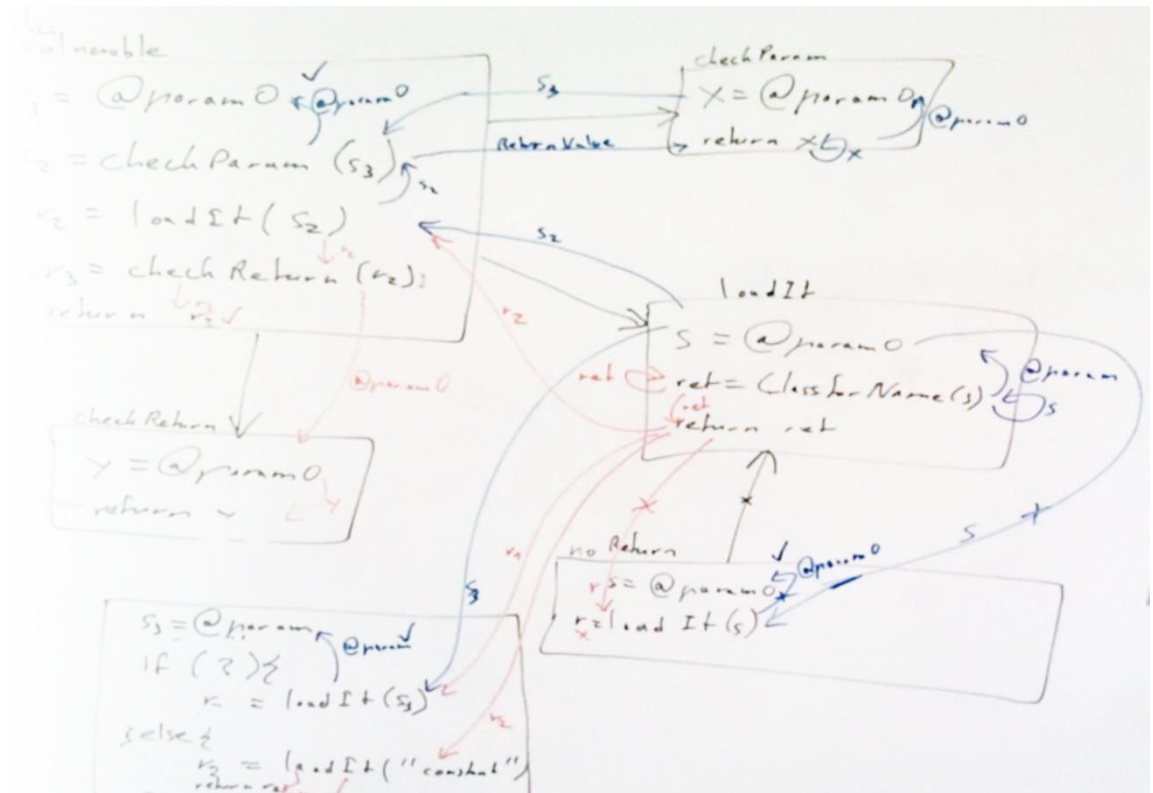 vulnerable
s3 = @param0
@param0
s2 = checkParam (s3)
s2
r2 = loadIt( s2 )
r2
r3 = checkReturn (r2);
return r2
s3
Return Value
checkParam
x = @param0
@param0
return x
x
s2
r2
@param0
checkReturn
y = @param0
y
return y
loadIt
s = @param0
@param
ret
ret = Class forName(s)
s
ret
return ret
s
s3
r1
r2
no Return
@param0
s = @param0
r = load It (s)
s3 = @param
@param
if (?){
= loadIt (s3)
} else {
r2 = loadIt("constant")
return